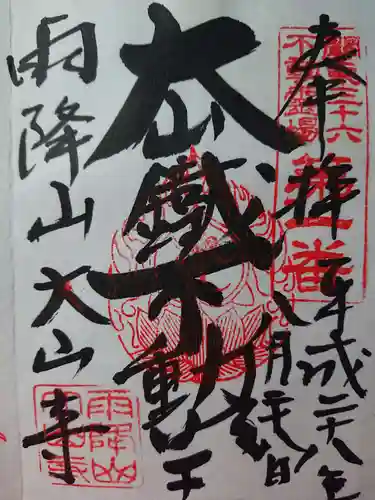 關東三十六
不動霊場
第一番
奉拝
平成二十八年
八月
大山鐵不動明王
雨降山大山寺
雨降山
大山寺